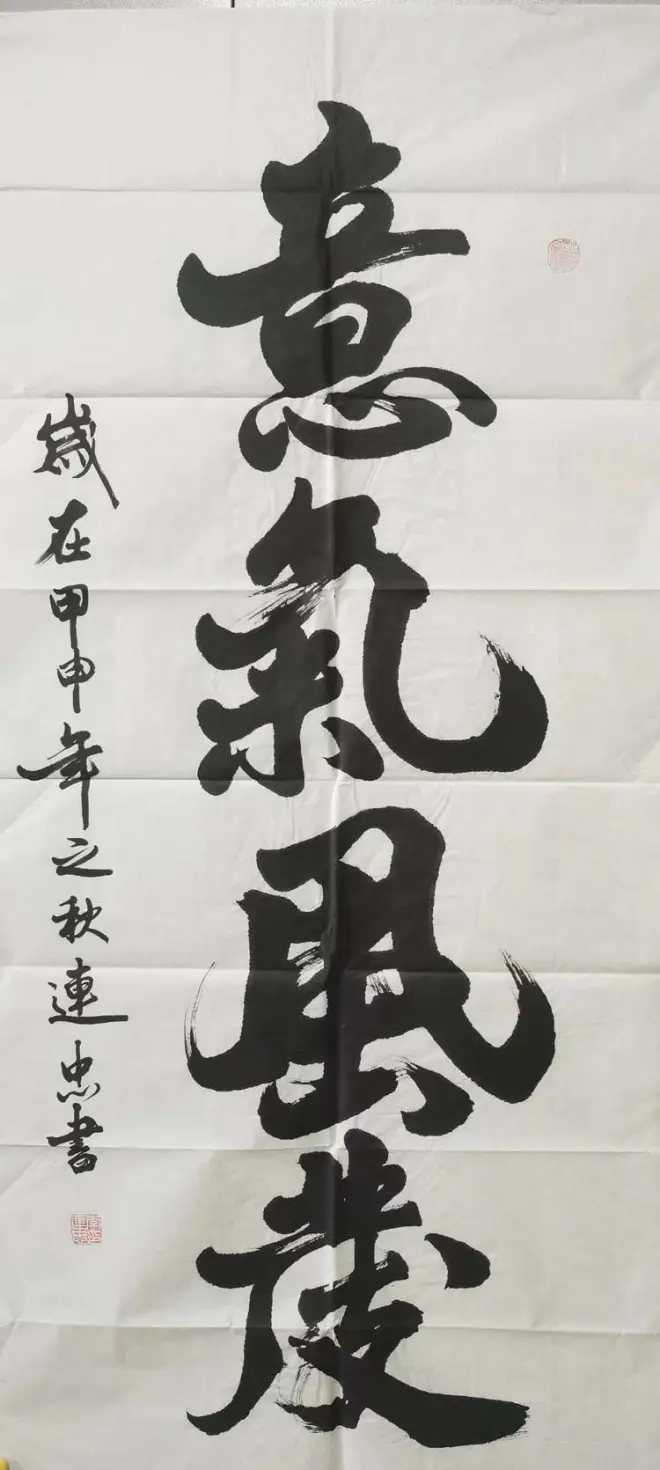 意氣風發
歲在甲申年之秋連忠書